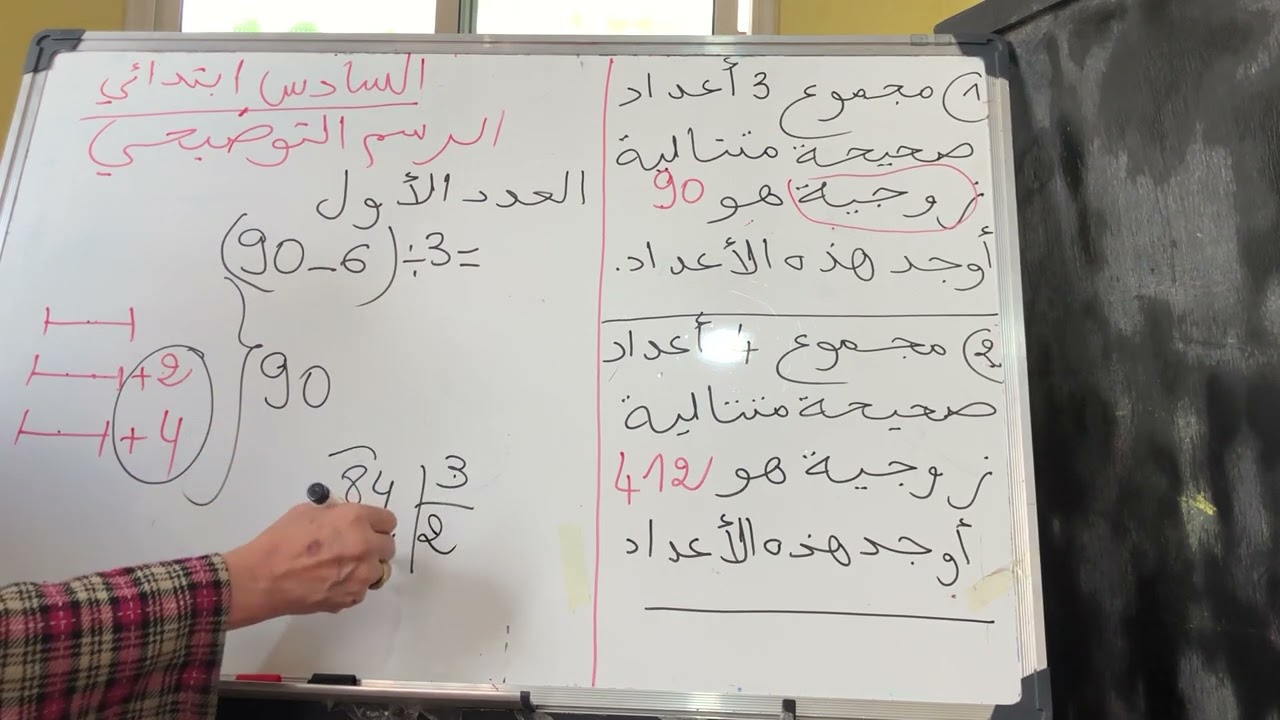 السادس ابتدائي
الرسم التوضيحي
العدد الأول
(90-6)÷3=
+2
+4
90
84 3
2
1 مجموع 3 أعداد
صحيحة متتالية
زوجية هو 90
أوجد هذه الأعداد.
2 مجموع 4 أعداد
صحيحة متتالية
زوجية هو 412
أوجد هذه الأعداد